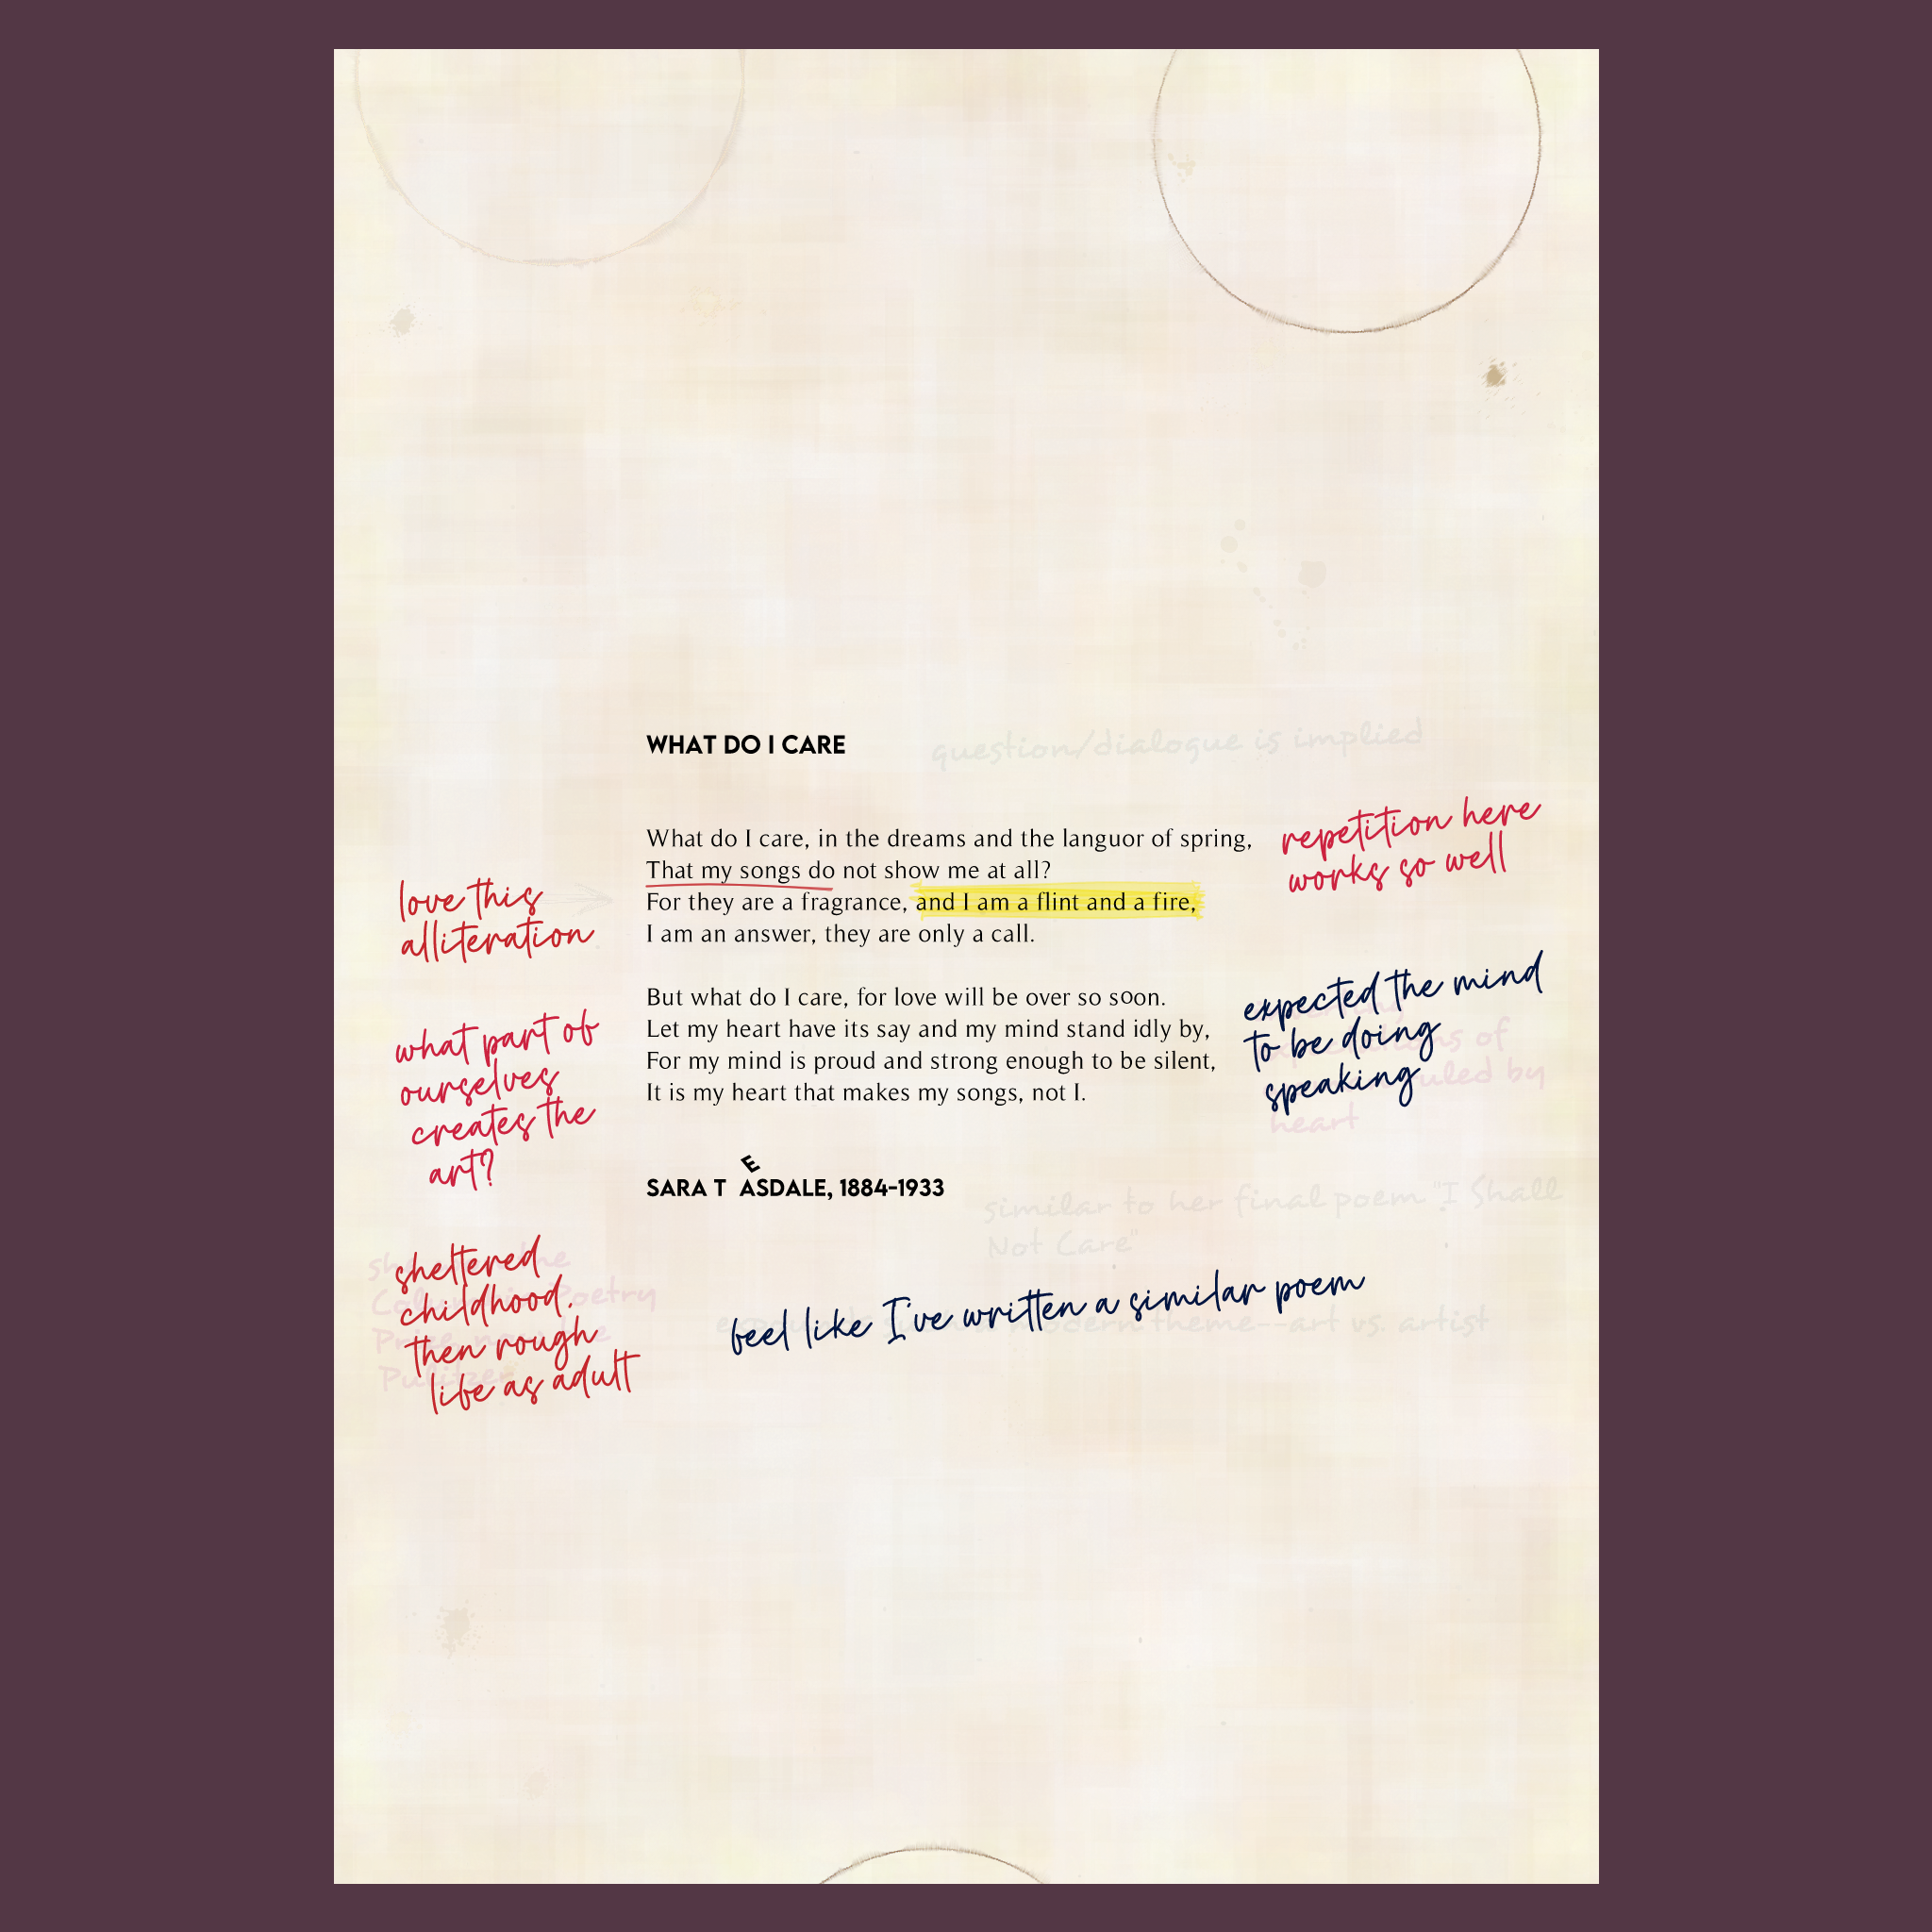 WHAT DO I CARE
question/dialogue is implied
What do I care, in the dreams and the languor of spring,
That my songs do not show me at all?
For they are a fragrance, and I am a flint and a fire,
I am an answer, they are only a call.
But what do I care, for love will be over so soon.
Let my heart have its say and my mind stand idly by,
For my mind is proud and strong enough to be silent,
It is my heart that makes my songs, not I.
SARA TEASDALE, 1884-1933
repetition here
works so well
love this
alliteration
expected the mind
to be doing
speaking
of
ruled by
heart
what part of
ourselves
creates the
art?
similar to her final poem "I Shall
Not Care"
sheltered
childhood.
then rough
life as adult
Poetry
Pulitzer
feel like I've written a similar poem
modern theme--art vs. artist